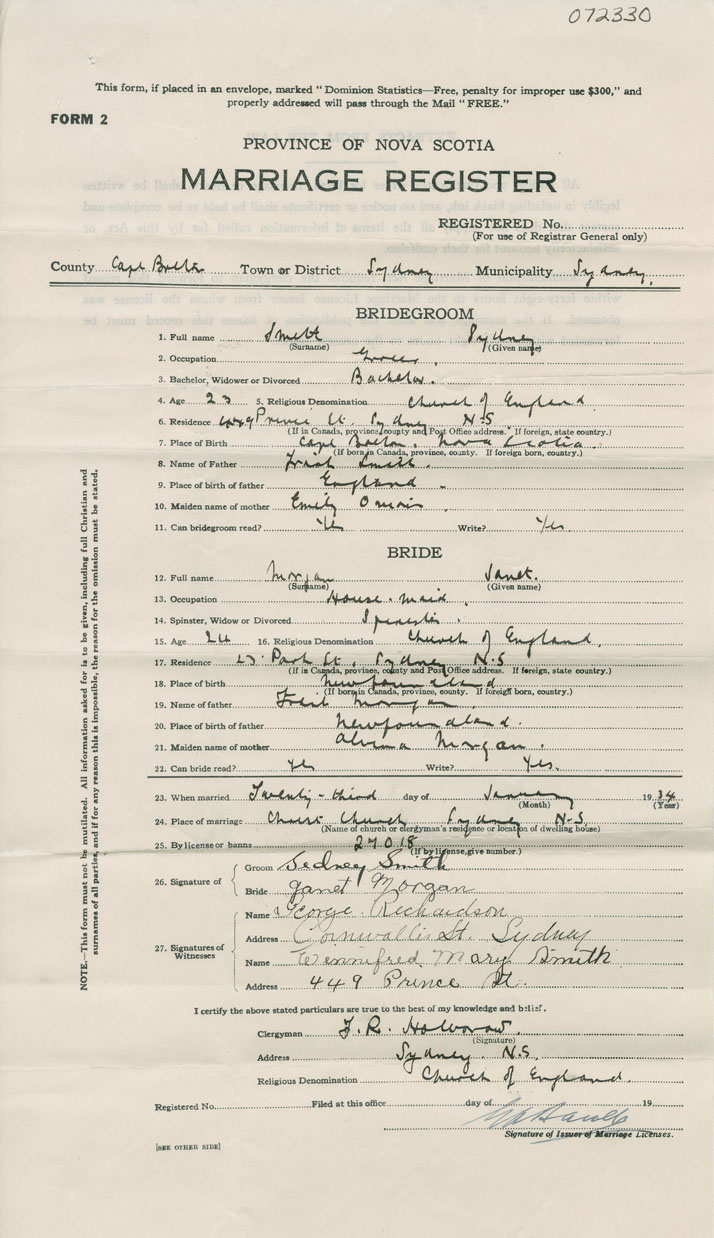 072330
This form, if placed in an envelope, marked "Dominion Statistics—Free, penalty for improper use $300," and
properly addressed will pass through the Mail "FREE."
FORM 2
PROVINCE OF NOVA SCOTIA
MARRIAGE REGISTER
REGISTERED No.
(For use of Registrar General only)
County Cape Breton Town or District Sydney Municipality Sydney.
BRIDEGROOM
1. Full name Smith Sydney
(Surname) (Given name)
2. Occupation Grocer.
3. Bachelor, Widower or Divorced Bachelor.
4. Age 23 5. Religious Denomination Church of England
6. Residence 449 Prince St. Sydney N.S
(If in Canada, province, county and Post Office address. If foreign, state country.)
7. Place of Birth Cape Breton. Nova Scotia
(If born in Canada, province, county. If foreign born, country.)
8. Name of Father Smith.
9. Place of birth of father England
10. Maiden name of mother Emily
11. Can bridegroom read? Yes Write? Yes.
BRIDE
12. Full name Morgan Janet.
(Surname) (Given name)
13. Occupation House-maid.
14. Spinster, Widow or Divorced Spinster.
15. Age 24 16. Religious Denomination Church of England.
17. Residence Park St. Sydney N.S
(If in Canada, province, county and Post Office address. If foreign, state country.)
18. Place of birth Newfoundland
(If born in Canada, province, county. If foreign born, country.)
19. Name of father Morgan.
20. Place of birth of father Newfoundland.
21. Maiden name of mother Morgan.
22. Can bride read? Yes Write? Yes.
23. When married Twenty-third day of January 1934
(Month) (Year)
24. Place of marriage Christ Church Sydney N-S.
(Name of church or clergyman's residence or location of dwelling house)
25. By license or banns 27018
(If by license, give number.)
26. Signature of
Groom Sedney Smith
Bride Janet Morgan
27. Signatures of Witnesses
Name George Richardson
Address Cornwallis St. Sydney
Name Wennifred Mary Smith
Address 449 Prince St.
I certify the above stated particulars are true to the best of my knowledge and belief.
Clergyman F. R.
(Signature)
Address Sydney. N.S.
Religious Denomination Church of England.
Registered No. Filed at this office day of 19
Signature of Issuer of Marriage Licenses.
[SEE OTHER SIDE]
NOTE.—This form must not be mutilated. All information asked for is to be given, including full Christian and
surnames of all parties, and if for any reason this is impossible, the reason for the omission must be stated.